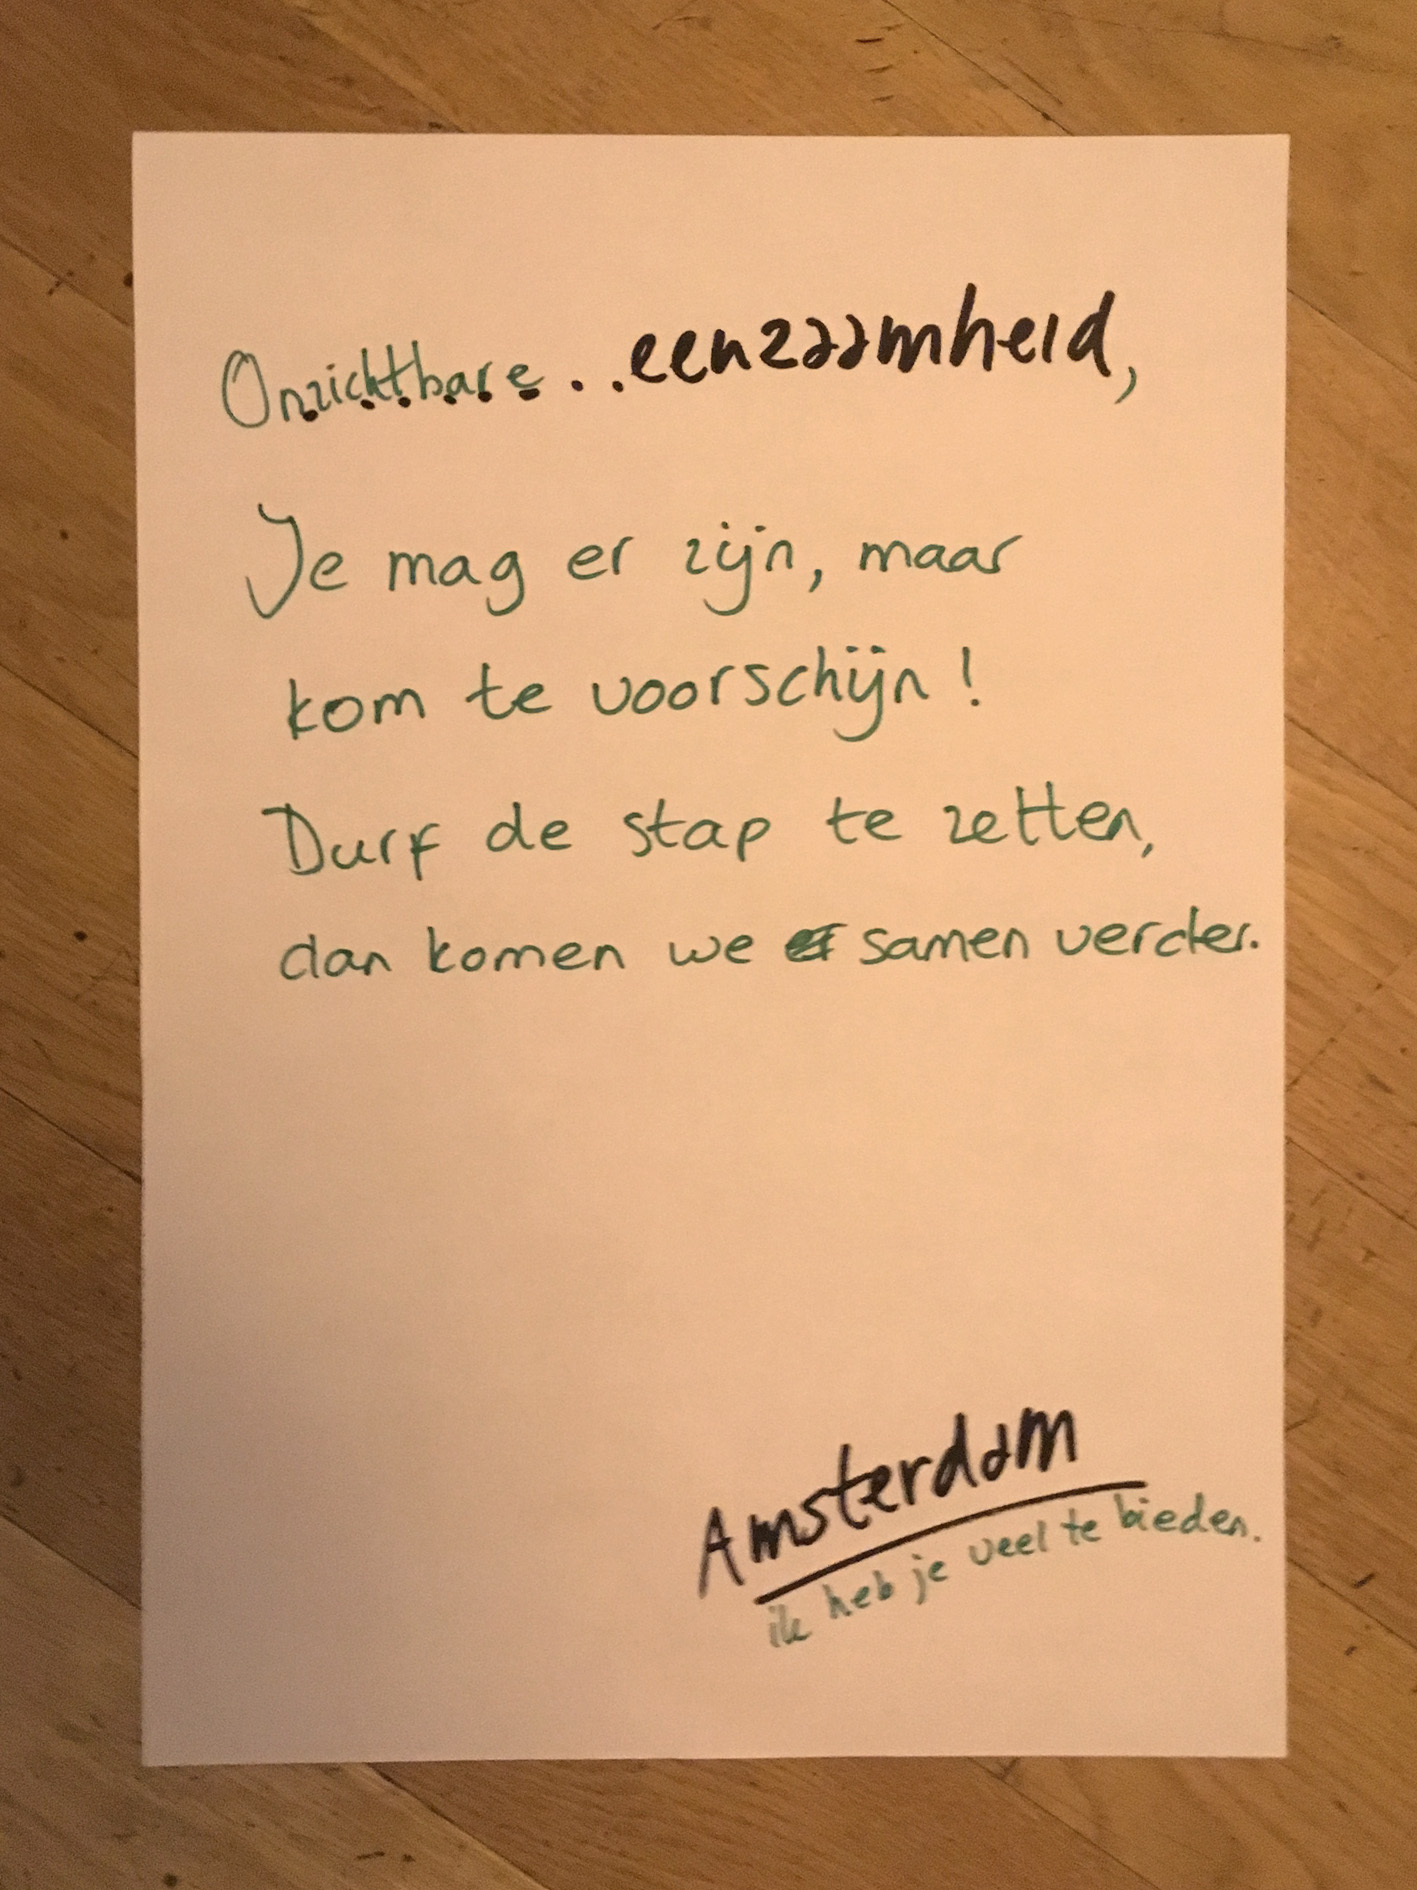 Onzichtbare ..eenzaamheid,
Je mag er zijn, maar
kom te voorschijn!
Durf de stap te zetten,
dan komen we samen verder.
Amsterdam
ik heb je veel te bieden.